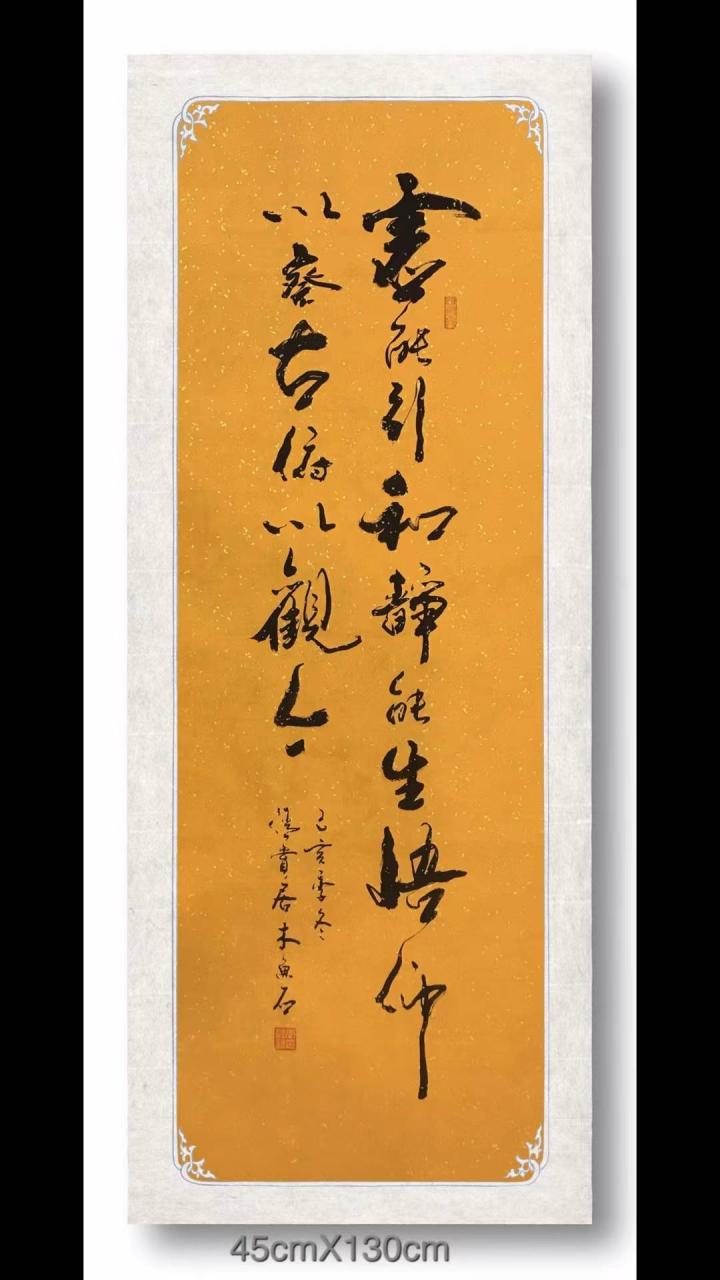 虛能引和靜能生悟仰
以察古俯以觀今
己亥季冬
居木魚石
45cmX130cm